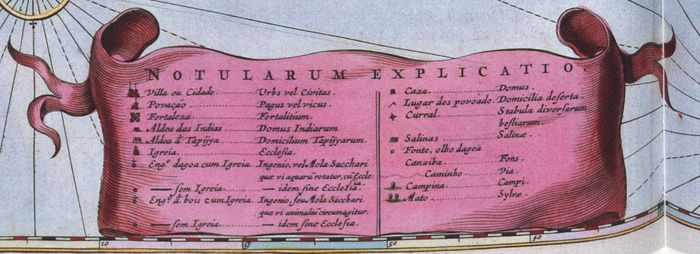 NOTULARUM EXPLICATIO.
Villa ou Cidade Urbs vel Civitas.
Povaçao Pagus vel vicus.
Fortaleza Fortalitium.
Aldea das Indias Domus Indiarum
Aldea d' Tapijya Domicilium Tapijyarum.
Igreia Ecclesia.
Engº dagoa cum Igreia Ingenio, vel Mola Sacchari
quæ vi aquarū rotatur, cū Eccle
sia
sem Igreia idem sine Ecclesia
Engº d' bois cum Igreia Ingenio, seu Mola Sacchari
quæ vi animaliū circumagitur.
sem Igreia idem sine Ecclesia.
Caza Domus.
Lugar des povoado Domicilia deserta.
Curral Stabula diversarum
bestiarum.
Salinas Salinæ
Fonte, olho dagoa
Canaiba Fons.
Caminho Via.
Campina Campi.
Mato Sylvæ.
10 9 50 40